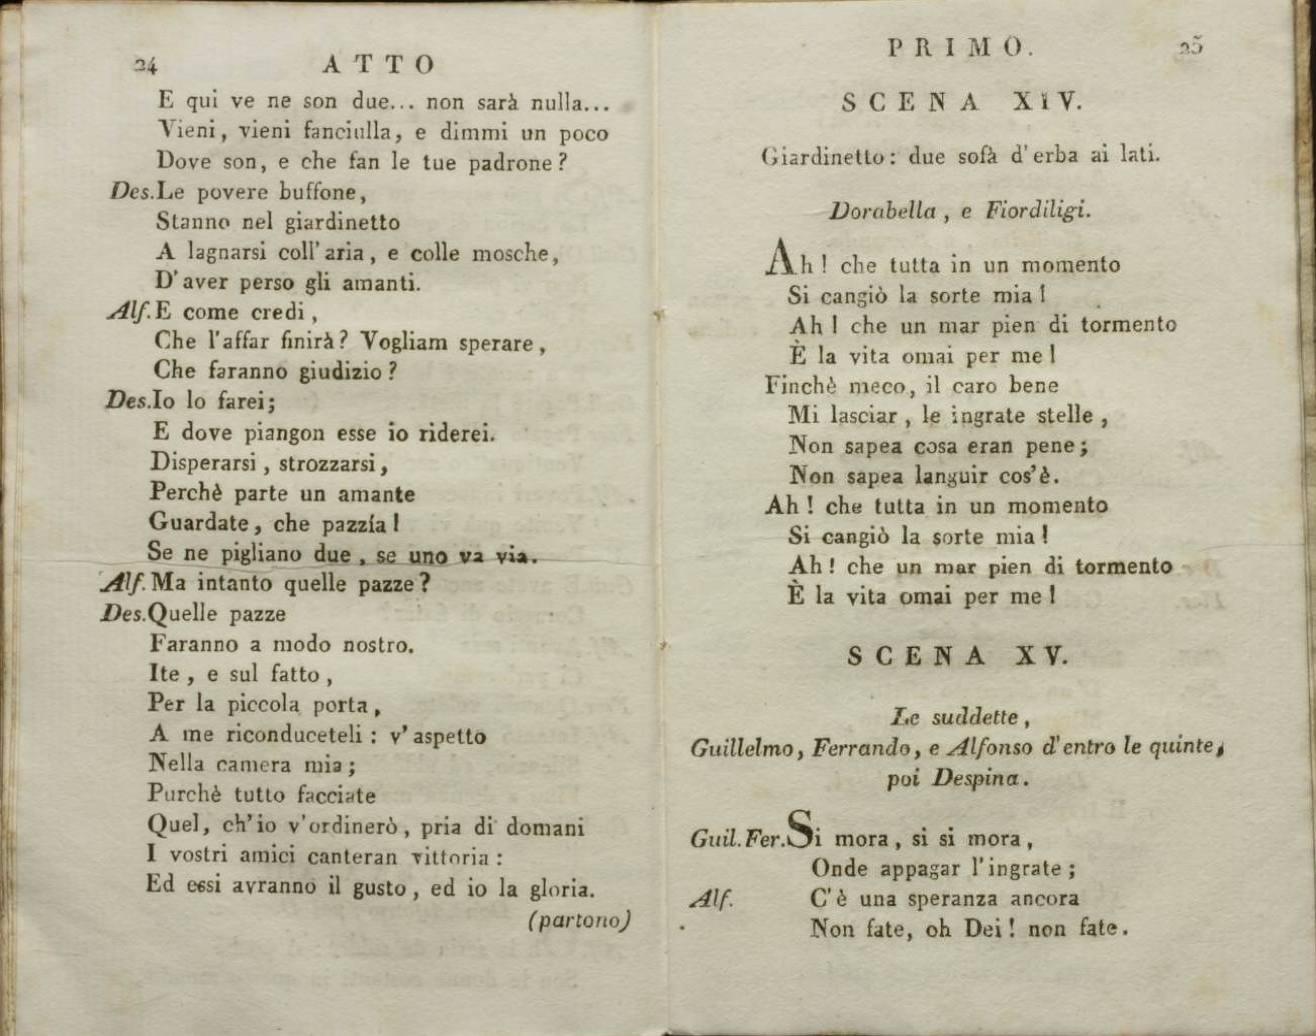 24 ATTO
E qui ve ne son due... non sarà nulla...
Vieni, vieni fanciulla, e dimmi un poco
Dove son, e che fan le tue padrone?
Des. Le povere buffone,
Stanno nel giardinetto
A lagnarsi coll'aria, e colle mosche,
D'aver perso gli amanti.
Alf. E come credi,
Che l'affar finirà? Vogliam sperare,
Che faranno giudizio?
Des. Io lo farei;
E dove piangon esse io riderei.
Disperarsi, strozzarsi,
Perchè parte un amante
Guardate, che pazzía!
Se ne pigliano due, se uno va via.
Alf. Ma intanto quelle pazze?
Des. Quelle pazze
Faranno a modo nostro.
Ite, e sul fatto,
Per la piccola porta,
A me riconduceteli: v'aspetto
Nella camera mia;
Purchè tutto facciate
Quel, ch'io v'ordinerò, pria di domani
I vostri amici canteran vittoria:
Ed essi avranno il gusto, ed io la gloria.
(partono)
PRIMO. 25
SCENA XIV.
Giardinetto: due sofà d'erba ai lati.
Dorabella, e Fiordiligi.
Ah! che tutta in un momento
Si cangiò la sorte mia!
Ah! che un mar pien di tormento
È la vita omai per me!
Finchè meco, il caro bene
Mi lasciar, le ingrate stelle,
Non sapea cosa eran pene;
Non sapea languir cos'è.
Ah! che tutta in un momento
Si cangiò la sorte mia!
Ah! che un mar pien di tormento
È la vita omai per me!
SCENA XV.
Le suddette,
Guillelmo, Ferrando, e Alfonso d'entro le quinte,
poi Despina.
Guil. Fer. Si mora, si si mora,
Onde appagar l'ingrate;
Alf. C'è una speranza ancora
Non fate, oh Dei! non fate.